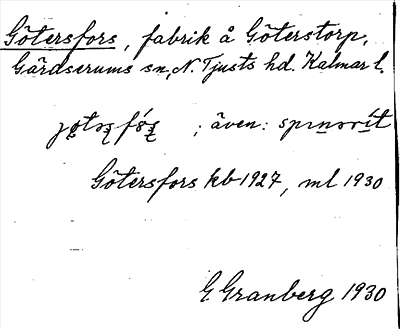 Götersfors, fabrik å Göterstorp,
Gärdserums sn, N. Tjusts hd. Kalmar l.
; även:
Götersfors kb 1927, ml 1930
G Granberg 1930